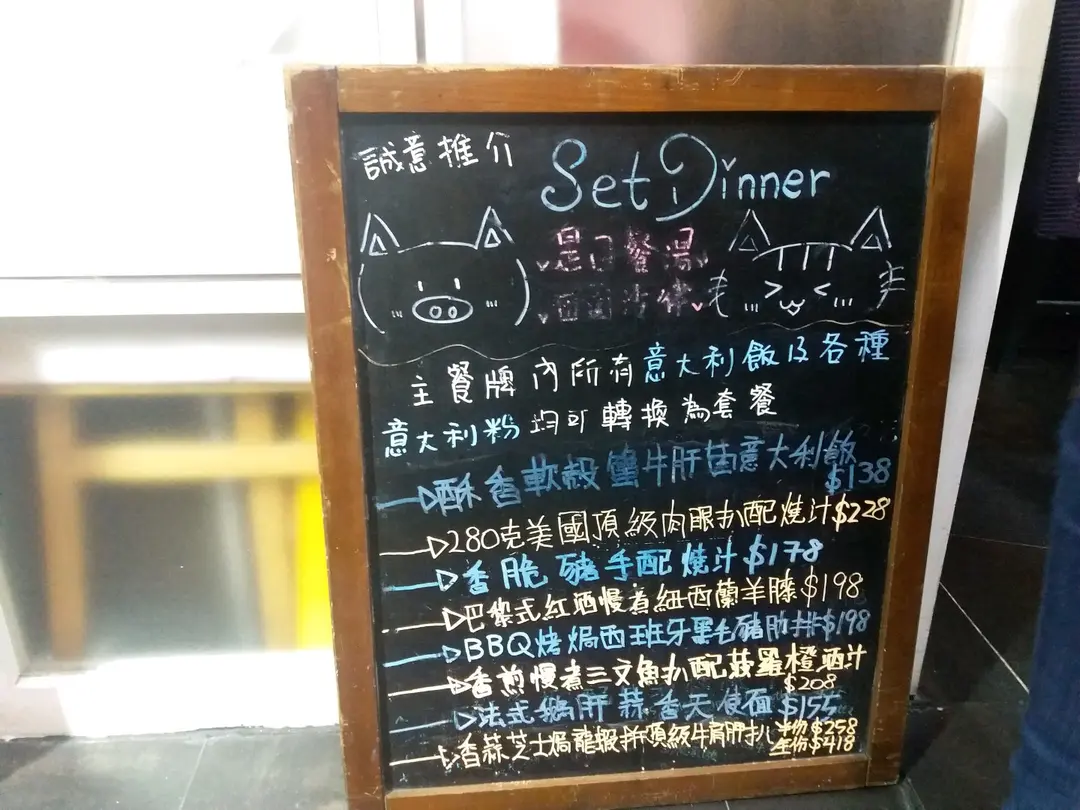 誠意推介
Set Dinner
是日餐湯
田園沙律
主餐牌內所有意大利飯及各種
意大利粉均可轉換為套餐
酥香軟殼蟹牛肝菌意大利飯
$138
280克美國頂級肉眼扒配燒汁$228
香脆豬手配燒汁$178
巴黎式紅酒慢煮紐西蘭羊膝$198
BBQ烤焗西班牙黑毛豬肋排$198
香煎慢煮三文魚扒配菠蘿橙酒汁
$208
法式鵝肝蒜香天使面$155
香蒜芝士焗龍蝦拼頂級牛肩胛扒 半份$258
全份$418